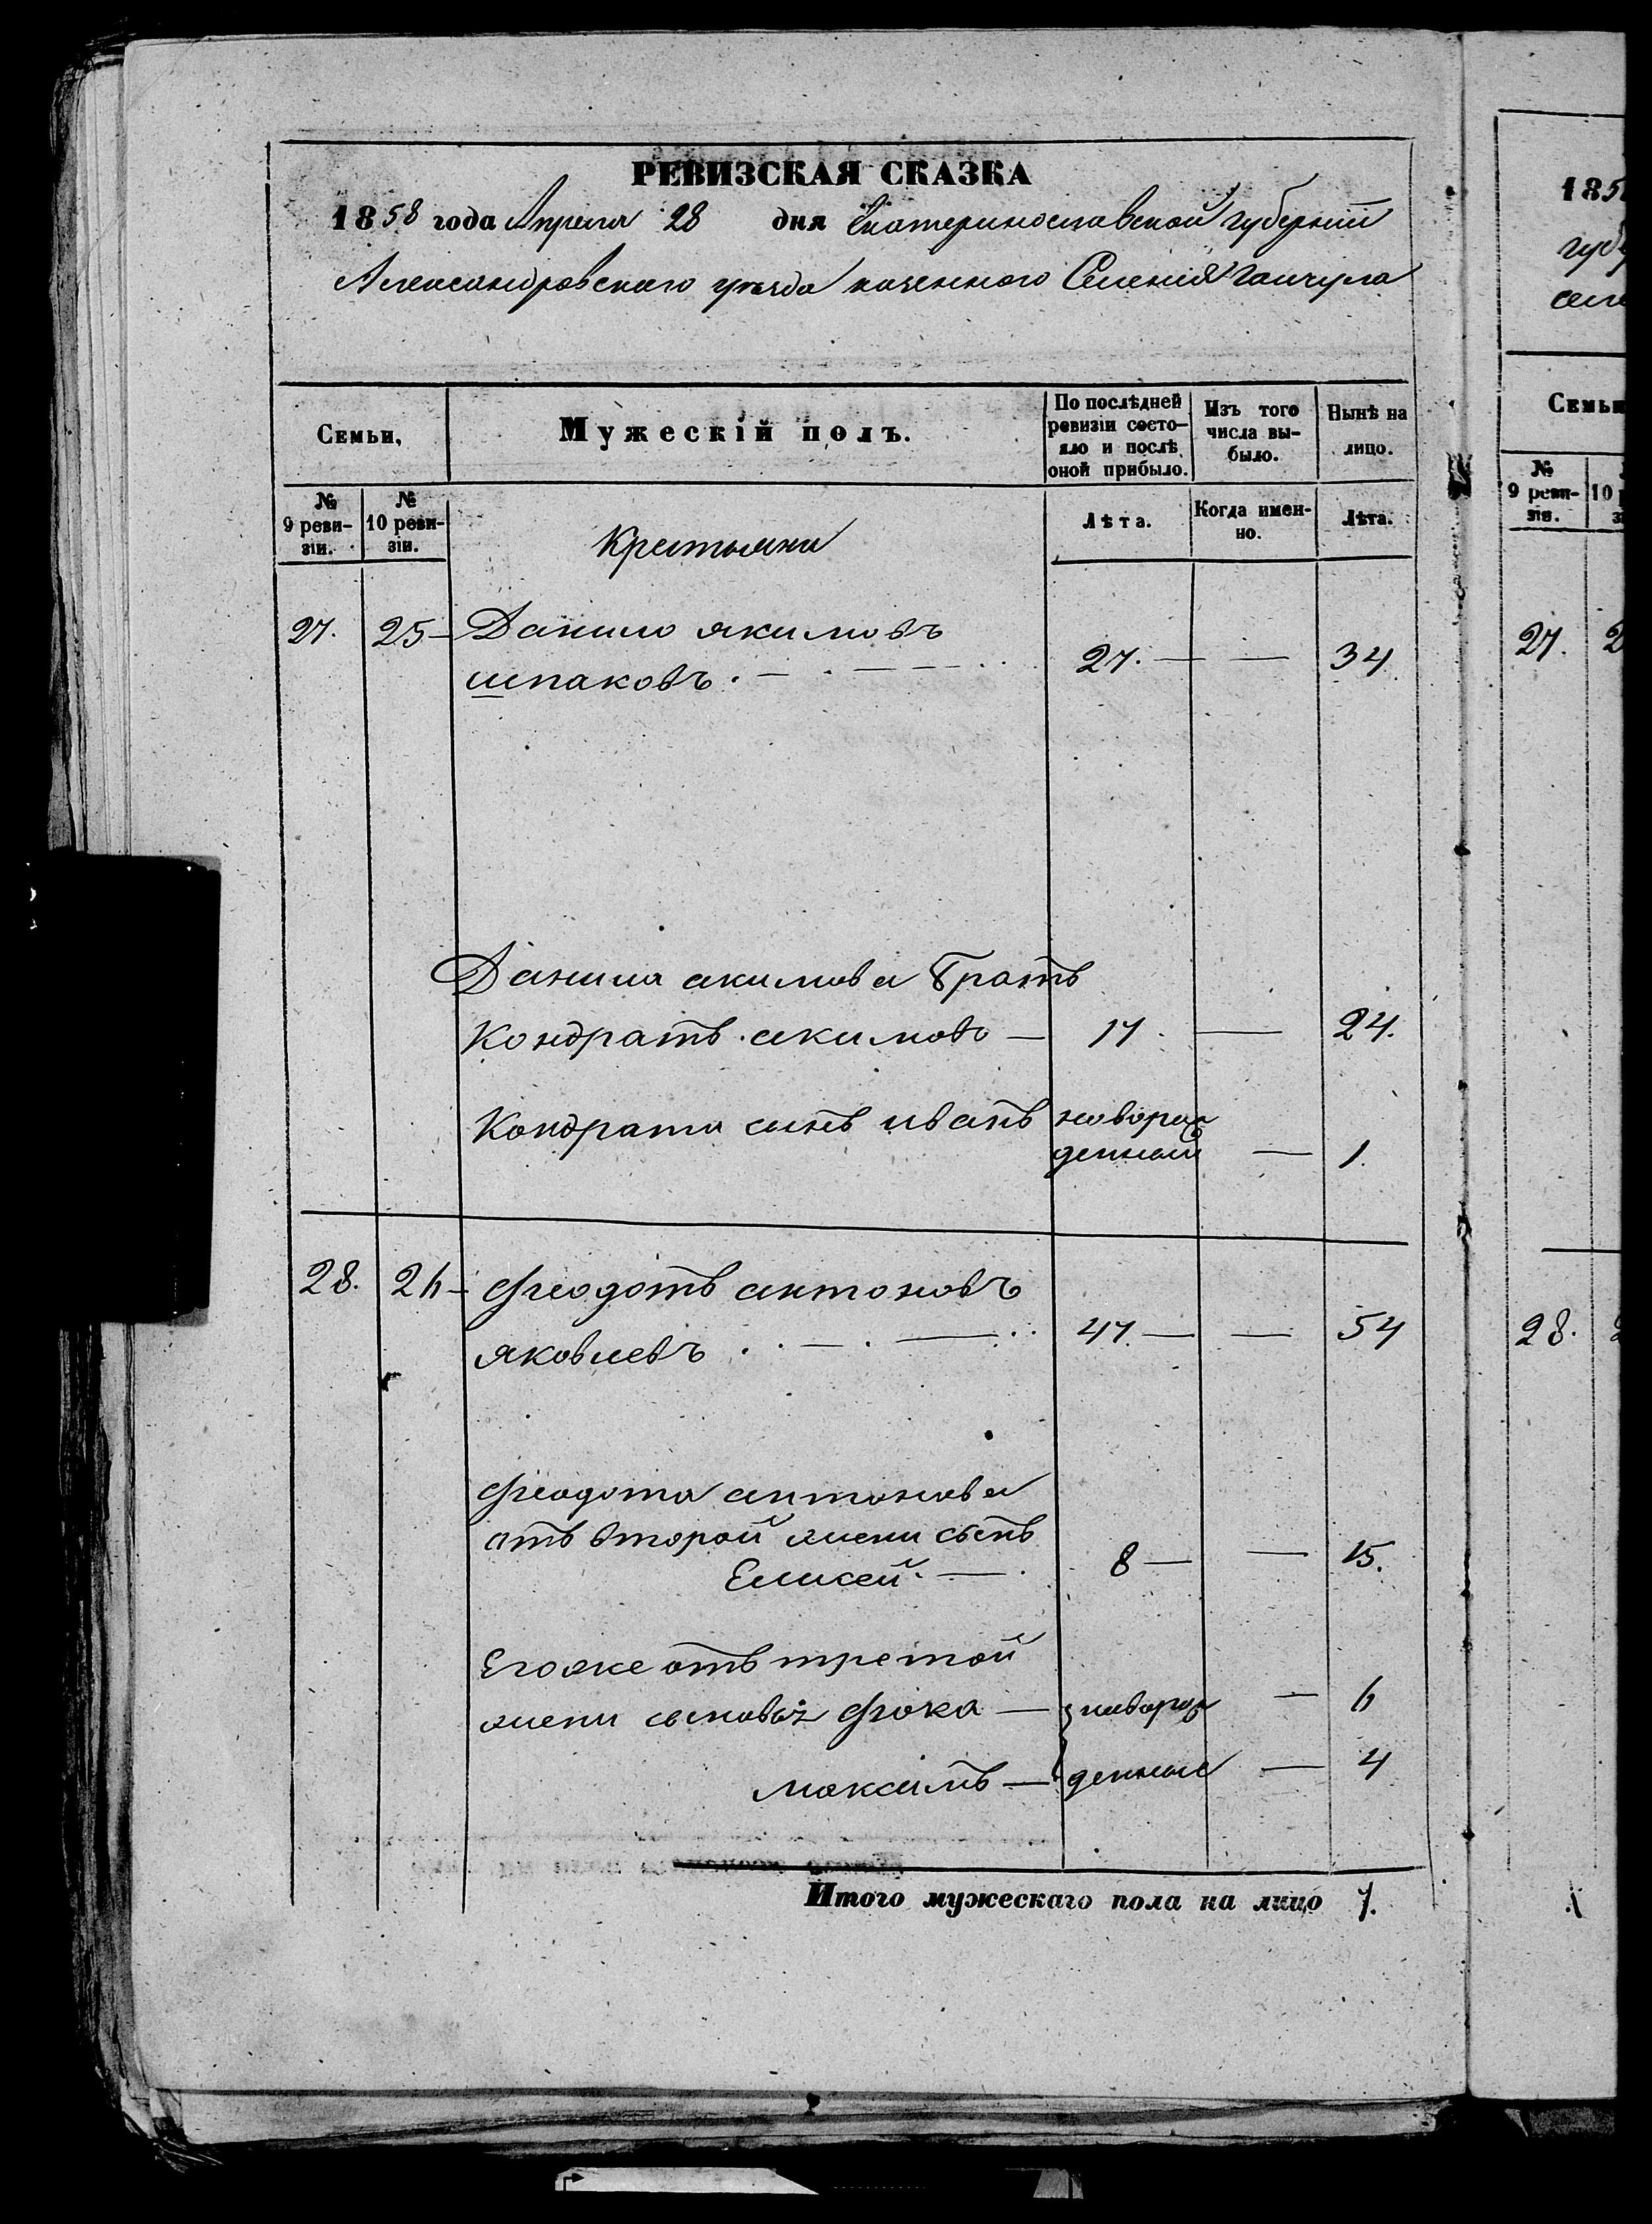 РЕВИЗСКАЯ СКАЗКА
1858 года Апреля 28 дня Екатеринославской губерніи
Александровскаго уѣзда казенного Селенія Гайчула
Семьи,
Мужескій полъ.
По послѣдней ревизіи состо-
яло и послѣ оной прибыло.
Изъ того числа вы-
было.
Нынѣ на лицо.
№ 9 реви-
зіи.
№ 10 реви-
зіи.
Крестьяни
Лѣта.
Когда имен-
но.
Лѣта.
27. 25 — Данило якимовъ
шпаковъ. — 27. — — 34
Данила акимова Братъ
Кондратъ акимовъ — 17. — 24.
Кондрата сынъ иванъ новорож
денный — 1.
28. 26 — Феодотъ антоновъ
яковлевъ — 47. — — 54
Феодота антонова
отъ второй жены сынъ
Елисей. — 8 — — 15.
Егоже отъ третой
жены сыновья Фока — новорож — 6
максимъ — денные — 4
Итого мужескаго пола на лицо 7.
185
губ
селе
Семьи
№ 9 реви-
зіи.
10
27. 2
28. 2